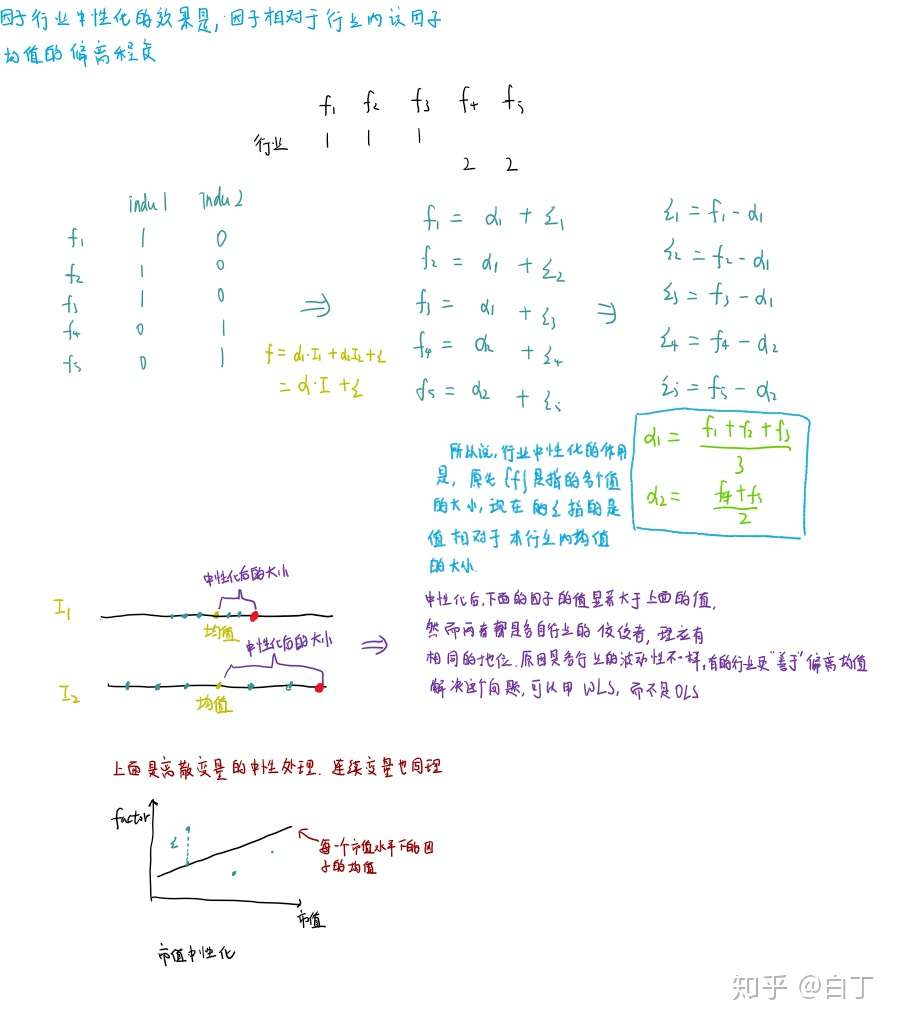 因子行业中性化的效果是,因子相对于行业内该因子
均值的偏离程度
f₁ f₂ f₃ f₄ f₅
行业 1 1 1
2 2
indu1 Indu2
f₁ 1 0
f₂ 1 0
f₃ 1 0
f₄ 0 1
f₅ 0 1
⇒
f=α₁·I₁+α₂I₂+ε
=α·I+ε
f₁ = α₁ + ε₁
f₂ = α₁ + ε₂
f₃ = α₁ + ε₃
f₄ = α₂ + ε₄
f₅ = α₂ + ε₅
⇒
ε₁ = f₁-α₁
ε₂ = f₂-α₁
ε₃ = f₃-α₁
ε₄ = f₄-α₂
ε₅ = f₅-α₂
α₁ = (f₁+f₂+f₃)/3
α₂ = (f₄+f₅)/2
所以说,行业中性化的作用
是,原先{f}是指的各个值
的大小,现在的ε指的是
值相对于本行业内均值
的大小.
I₁
中性化后的大小
均值
I₂
中性化后的大小
均值
⇒
中性化后,下面的因子的值显著大于上面的值,
然而两者都是各自行业的佼佼者,理应有
相同的地位.原因是各行业的波动性不一样,有的行业更“善于”偏离均值
解决这个问题,可以用WLS,而不是OLS
上面是离散变量的中性处理.连续变量也同理
factor
ε
每一个市值水平下的因
子的均值
市值
市值中性化
知乎 @白丁